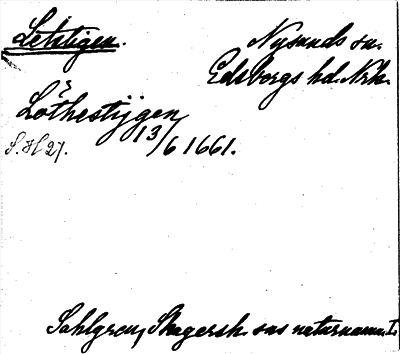 Letstigen.
Nysunds sn.
Edsbergs hd. Nrk.
Löthestijgen
13/6 1661.
S. 27.
Sahlgren, Skagersh. sns naturnamn. I.